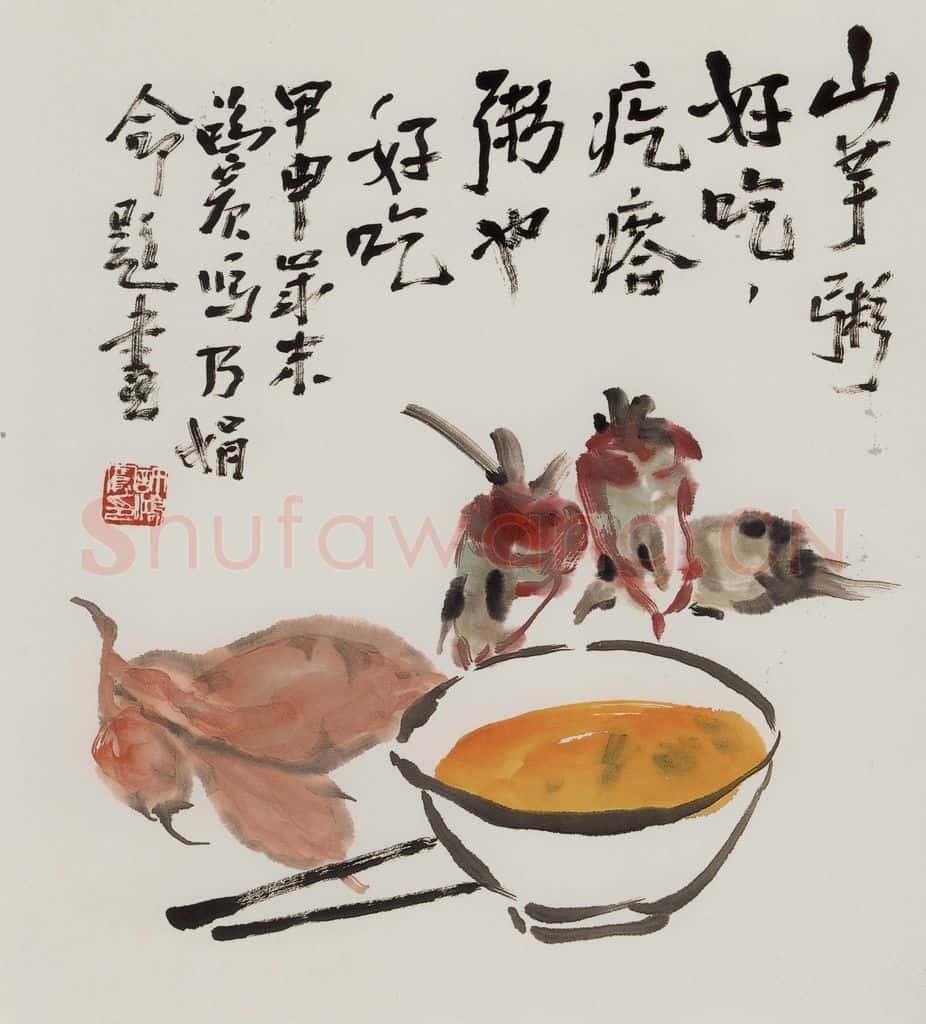 山芋粥
好吃，
疙瘩
粥也
好吃
甲申嵗末
鴻賓写乃娟
命题畫
Shufawang.CN